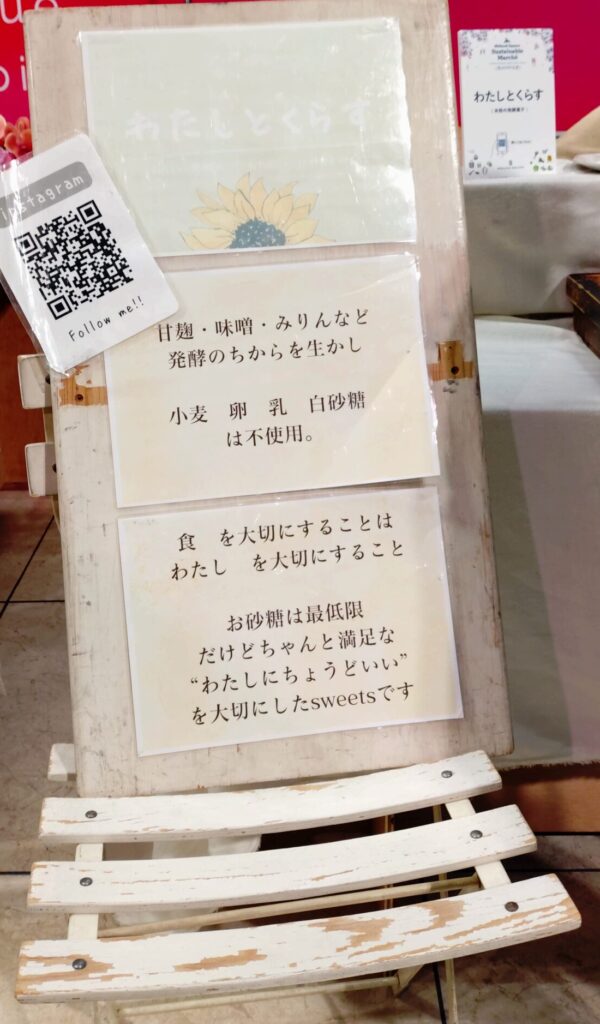 わたしとくらす
instagram
Follow me!!
甘麹・味噌・みりんなど
発酵のちからを生かし
小麦　卵　乳　白砂糖
は不使用。
食　を大切にすることは
わたし　を大切にすること
お砂糖は最低限
だけどちゃんと満足な
“わたしにちょうどいい”
を大切にしたsweetsです
Sustainable
Marché
わたしとくらす